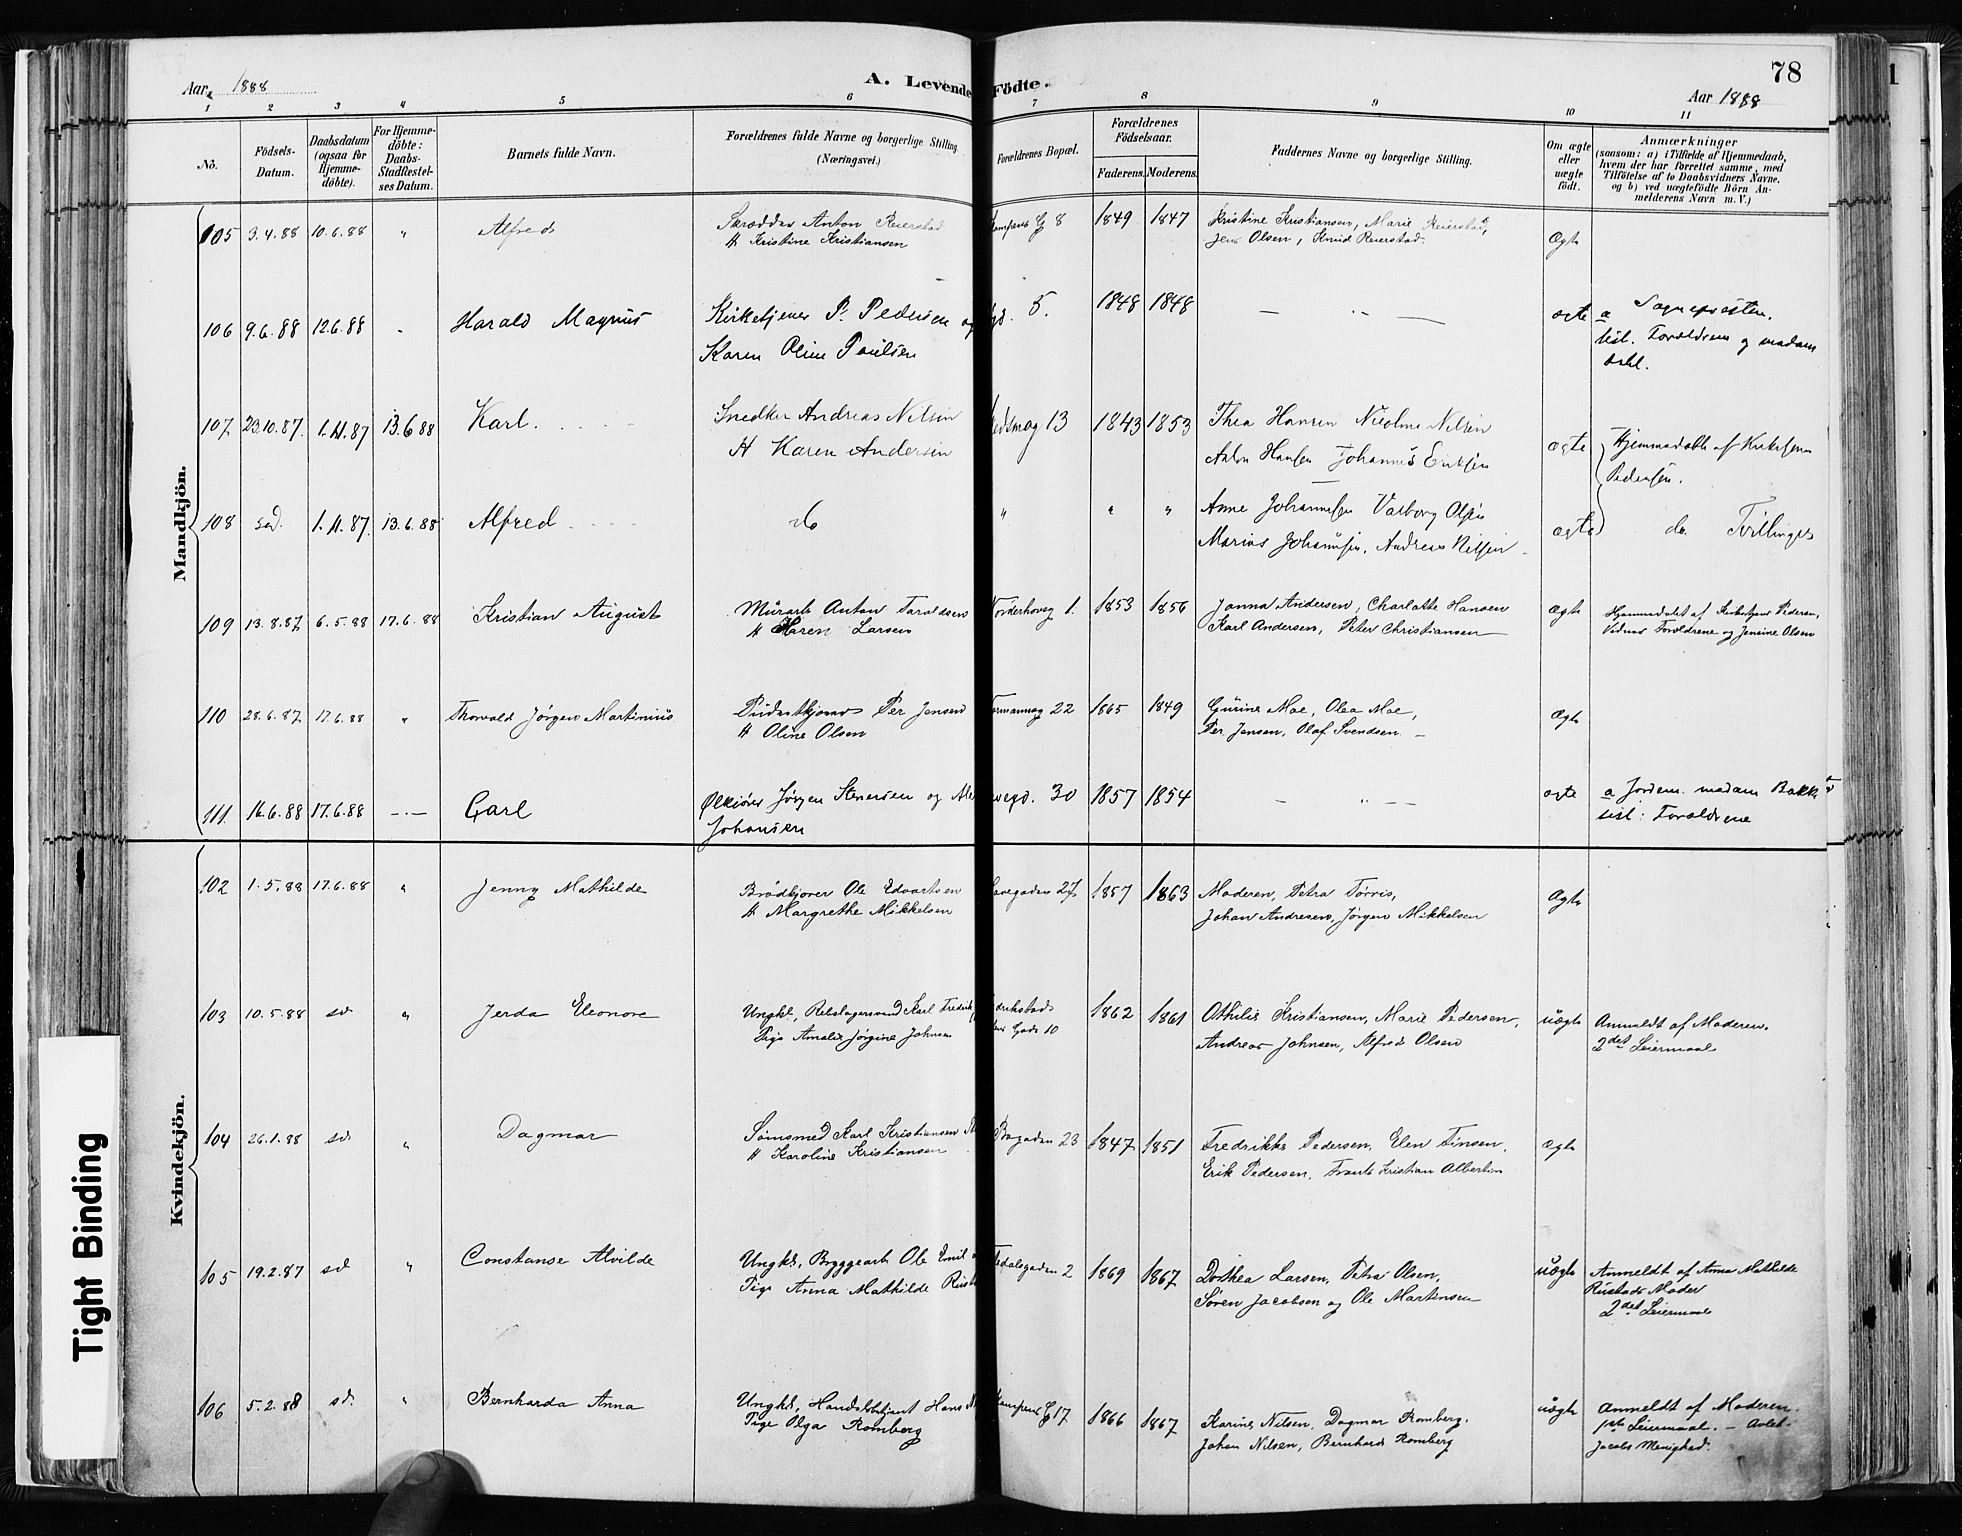 Aar 1888
A. Levende Födte.
78
Aar 1888
1 2 3 4 5 6 7 8 9 10 11
No.
Födsels-Datum.
Daabsdatum (ogsaa for Hjemme-döbte).
For Hjemme-döbte: Daabs-Stadfestel-ses Datum.
Barnets fulde Navn.
Forældrenes fulde Navne og borgerlige Stilling (Næringsvei.)
Forældrenes Bopæl.
Forældrenes Födselsaar.
Faderens. Moderens.
Faddernes Navne og borgerlige Stilling.
Om ægte eller uægte födt.
Anmærkninger
(saasom: a) i Tilfælde af Hjemmedaab, hvem der har forrettet samme, med Tilföielse af to Daabsvidners Navne, og b) ved uægtefödte Börn An-melderens Navn m. V.)
Mandkjön.
105 3.4.88 10.6.88 " Alfred Skrædder Anton Reierstad Kampens G 8 1849 1847 Kristine Kristiansen, Marie Reierstad,
H Kristine Kristiansen Jens Olsen, Knud Reierstad. Ægte
106 9.6.88 12.6.88 " Harald Magnus Kirketjener P. Pedersen og gd. 5. 1848 1848 — " — ægte a Sognepresten.
Karen Oline Paulsen test. Forældrene og madam Dahl.
107 23.10.87. 1.11.87 13.6.88 Karl. Snedker Andreas Nilsen 13 1843 1853 Thea Hansen Nicoline Nilsen
H Karen Andersen Anton Hansen Johannes Eriksen ægte Hjemmedøbt af Kirketjener Pedersen.
108 sed. 1.11.87. 13.6.88 Alfred do " " " Anne Johannesen Valborg Olsen
Marius Johansen, Andreas Nilsen ægte do. Tvillinger
109 13.8.87 6.5.88 17.6.88 Kristian August Murarb Anton Taraldsen Norderhovsg 1. 1853 1856 Janna Andersen, Charlotte Hansen Ægte Hjemmedøbt af Kirketjener Pedersen,
H Karen Larsen Karl Andersen, Peter Christiansen Vidner Forældrene og Jensine Olsen
110 28.6.87 17.6.88 " Thorvald Jørgen Martinius Per Jensen Normannsg 22 1865 1849 Gurine Moe, Olea Moe,
H Oline Olsen Per Jensen, Olaf Svendsen — Ægte
111 16.6.88 17.6.88 — " — Carl Ølkjører Jørgen Stenersen og vegd. 30 1857 1854 — " — ægte a Jordem. madam Bakke
Johansen test: Forældrene
Kvindekjön.
102 1.5.88 17.6.88 " Jenny Mathilde Brødkjører Ole Edvartsen gaden 27 1857 1863 Moderen, Petra Tørris,
H Margrethe Mikkelsen Johan Andresen, Jørgen Mikkelsen Ægte
103 10.5.88 sd " Jerda Eleonore Ungkl, Rebslagersvend Karl Fredrik 1862 1861 Othilie Kristiansen, Marie Pedersen, uægte Anmeldt af Moderen.
Pige Amalie Jørgine Johnsen Gade 10 Andreas Johnsen, Alfred Olsen 2det Leiermaal
104 26.1.88 sd " Dagmar Sømsmed Karl Kristiansen gaden 23 1847 1851 Fredrikke Pedersen, Elen Finsen, Ægte
H Karoline Kristiansen Erik Pedersen, Frants Kristian Albertin
105 19.2.87 sd " Constanse Alvilde Ungkl, Bryggearb Ole Emil dalsgaden 2 1869 1867 Dorthea Larsen, Petra Olsen, uægte Anmeldt af Anna Mathilde
Pige Anna Mathilde Rustad Søren Jacobsen og Ole Martinsen Rustads Moder
2det Leiermaal
106 5.2.88 sd. " Bernharda Anna Ungkl, Handelsbetjent Hans Kampens G 17 1866 1867 Karine Nilsen, Dagmar Romberg. uægte Anmeldt af Moderen.
Pige Olga Romberg Johan Nilsen, Bernhard Romberg 1ste Leiermaal. —
Jacobs Menighed
Tight Binding